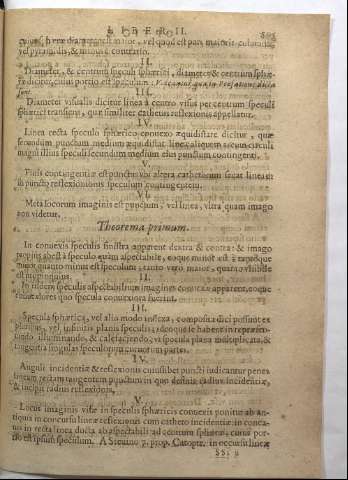 LIBER II.
vel pyramidis, & conus è contrario.
II.
Diameter, & centrum speculi sphærici, diameter & centrum sphæ-
ræ dicitur, cuius portio est speculum
III.
Diameter visualis dicitur linea à centro visus per centrum speculi
sphærici transiens, quæ similiter cathetus reflexionis appellatur.
IV.
Linea recta speculo sphærico conuexo æquidistare dicitur, quæ
secundum punctum medium æquidistat lineæ alicui circuli
magni illius speculi secundum medium eius punctum contingenti.
V.
Finis contingentiæ est punctus in altera cathetorum secat lineam
in puncto reflexionis speculum contingentem.
VI.
Meta locorum imaginis est punctum, vel linea, vltra quam imago
non videtur.
Theorema primum.
In conuexis speculis sinistra apparent dextra & contra: & imago
propius abest à speculo quàm aspectabile, eoque minor est
quanto minus est speculum, tanto verò maior, quanto visibile
est propinquius.
II.
In iisdem speculis aspectabilium imagines conuexæ apparent, eoque
quo specula conuexiora fuerint.
III.
Specula sphærica, vel alio modo inflexa, composita dici possunt ex
pluribus, vel infinitis planis speculis, ideoque se habent in repræsen-
tando, illuminando, & calefaciendo, vt specula plana multiplicata, &
tangentia singulas speculorum curuorum partes.
IV.
Anguli incidentiæ & reflexionis cuiuslibet puncti iudicantur penes
lineam rectam tangentem punctum in quo desinit radius incidentiæ,
& incipit radius reflexionis.
V.
Locus imaginis visæ in speculis sphæricis conuexis ponitur ab an-
tiquis in concursu lineæ reflexionis cum catheto incidentiæ: in conca-
uis in recta linea ducta ab aspectabili ad centrum sphæræ, cuius por-
tio est ipsum speculum. A Steuino 7. prop. Catoptr. in occursu lineæ